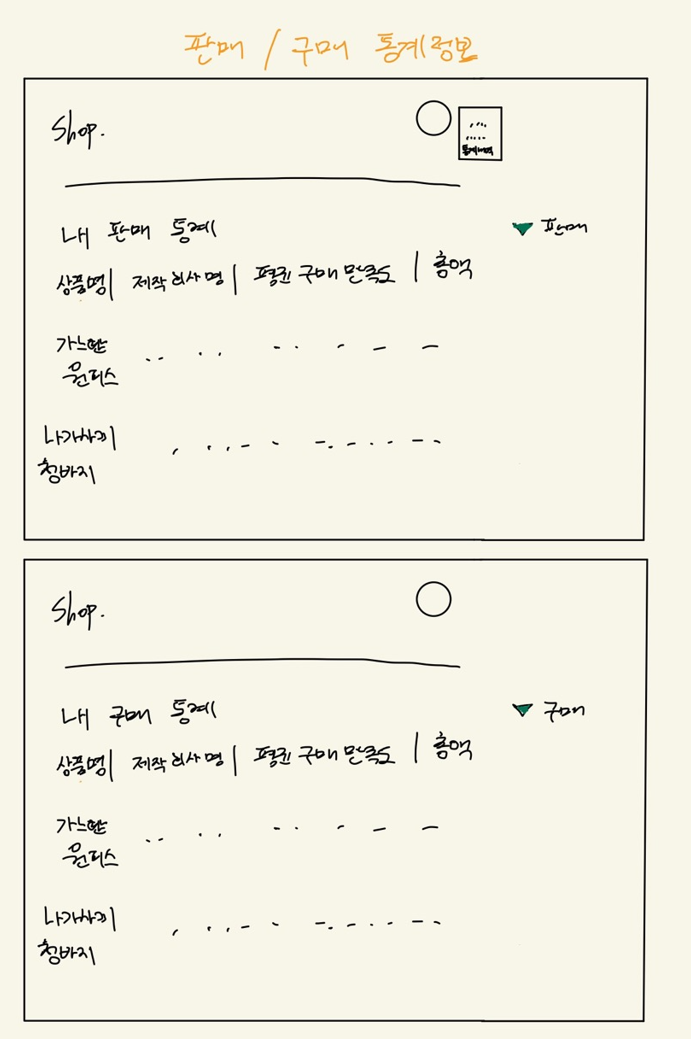 판매 / 구매 통계정보
Shop.
통계내역
내 판매 통계
▼ 판매
상품명 | 제작회사명 | 평균 구매 만족도 | 총액
가느란
원피스
나가사끼
청바지
Shop.
내 구매 통계
▼ 구매
상품명 | 제작회사명 | 평균 구매 만족도 | 총액
가느란
원피스
나가사끼
청바지